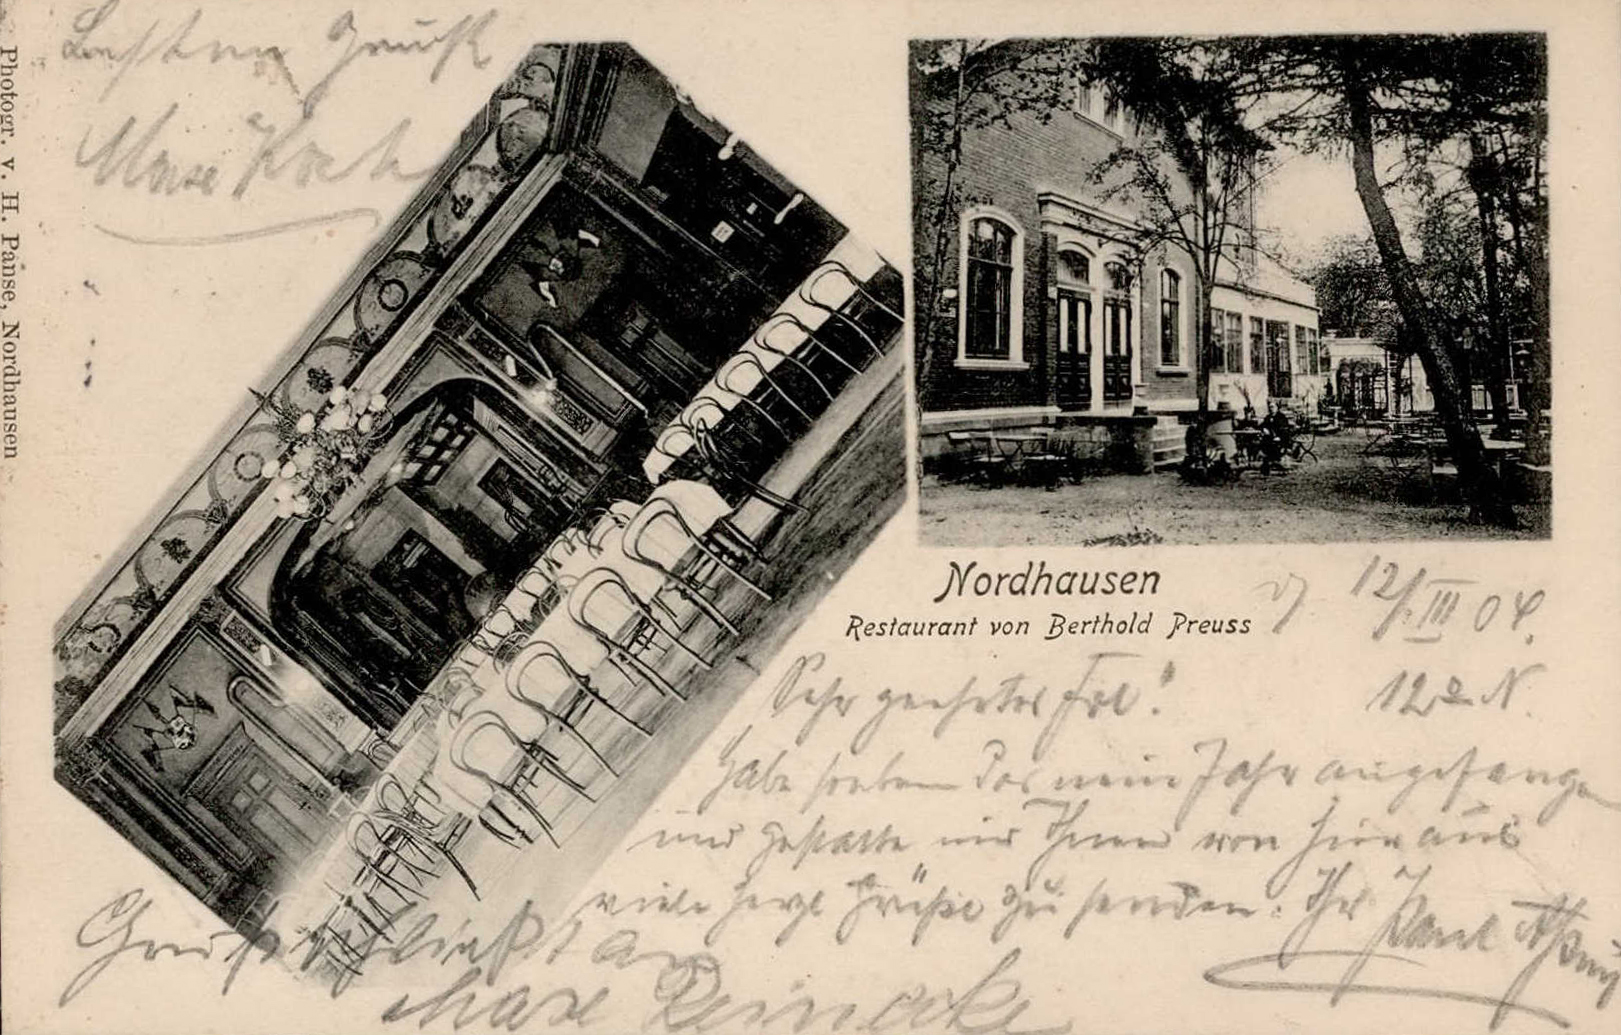 Photogr. v. H. Panse, Nordhausen
Besten Gruß
Max Koch
Nordhausen
Restaurant von Berthold Preuss
12/III 04.
Sehr geehrtes Frl!
12 N.
Habe soeben das neue Jahr angefangen
und gestatte mir Ihnen von hier aus
viele herzl Grüße zu senden. Ihr Paul
Gruß schließt an
Max Reinecke